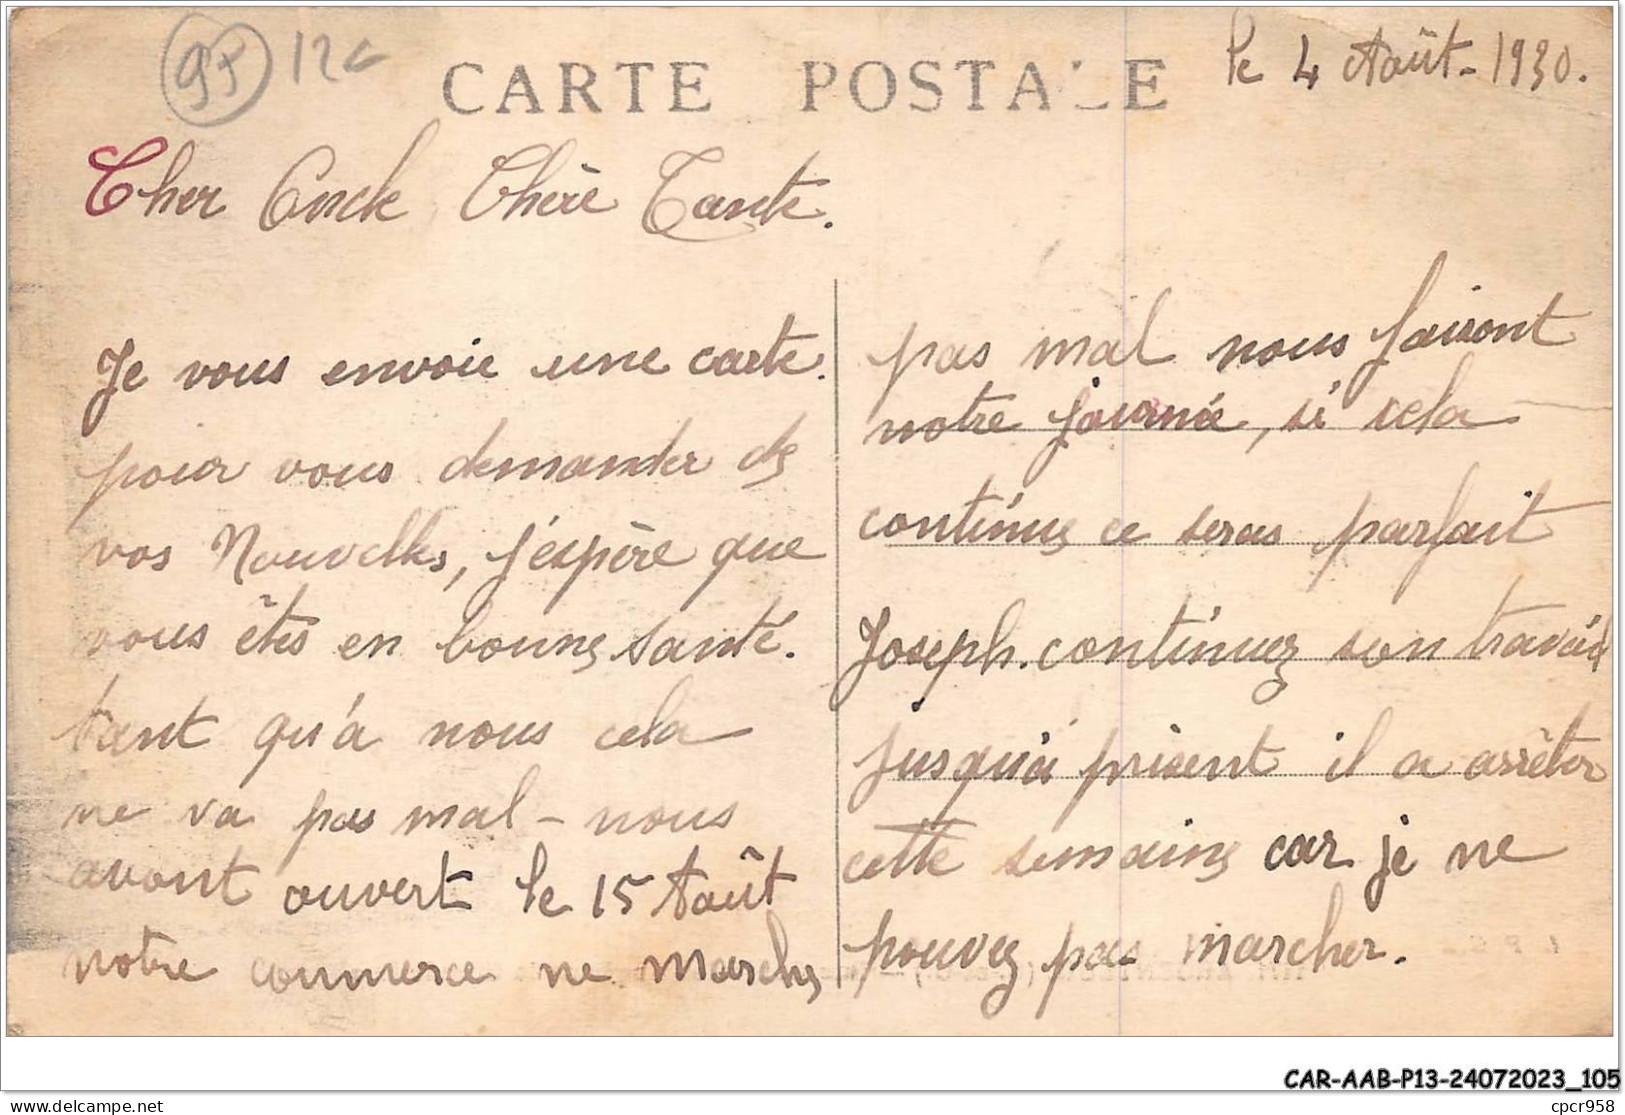 95 12c
CARTE POSTALE
le 4 Août - 1930.
Cher Oncle Chère Tante.
Je vous envoie une carte.
pour vous demander de
vos Nouvelles, j'éspère que
vous êtes en bonne santé.
tant qu'à nous cela
ne va pas mal - nous
avont ouvert le 15 Août
notre commerce ne marche
pas mal nous faisont
notre journée, si cela
continue ce seras parfait
Joseph. continuez son travail
jusqu'à prisent il a arrêter
cette semaine car je ne
pouvez pas marcher.
CAR-AAB-P13-24072023_105
delcampe.net
cpcr958